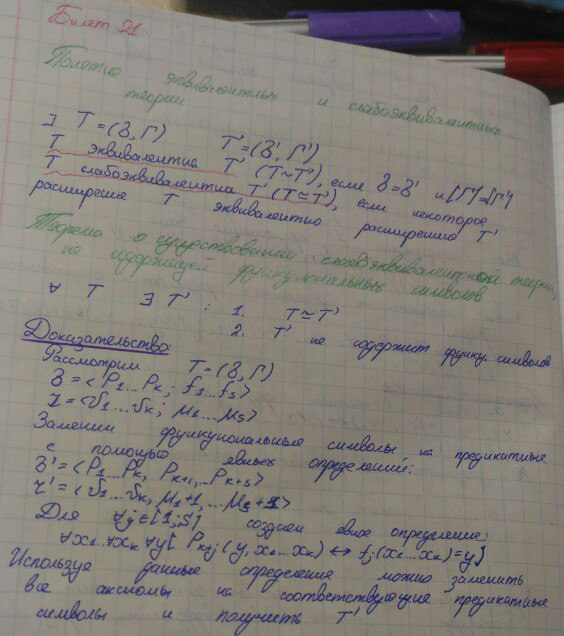 Билет 21
Понятие эквивалентных и слабоэквивалентных
теорий
∃ T = (δ, Γ)  T' = (δ', Γ')
T эквивалентна T' (T ~ T'), если δ = δ' и [Γ] = [Γ']
T слабоэквивалентна T' (T ≃ T'), если некоторое
расширение T эквивалентно расширению T'
Теорема о существовании слабоэквивалентной теории,
не содержащей функциональных символов
∀ T ∃ T' : 1. T ≃ T'
2. T' не содержит функц. символов
Доказательство
Рассмотрим T = (δ, Γ)
δ = <P1...Pk; f1...fs>
τ = <ν1...νk; μ1...μs>
Заменим функциональные символы на предикатные
с помощью явных определений:
δ' = <P1...Pk, Pk+1,...Pk+s>
τ' = <ν1...νk, μ1+1,...μs+1>
Для ∀j∈[1;s] создаем явное определение:
∀x1...∀xk ∀y[Pk+j(y, x1...xk) ↔ fj(x1...xk)=y]
Используя данные определения можно заменить
все аксиомы на соответствующие предикатные
символы и получить T'